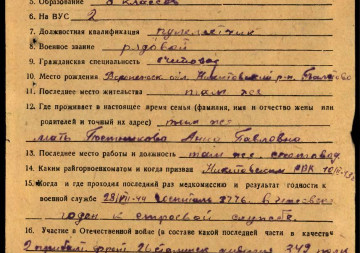 5. Образование 3 классов
6. На ВУС 2
7. Должностная квалификация пулеметчик
8. Военное звание рядовой
9. Гражданская специальность счетовод
10. Место рождения Воронежск обл. Никитовский р-н
11. Последнее место жительства там же
12. Где проживает в настоящее время семья (фамилия, имя и отчество жены или
родителей и точный их адрес) там же
мать Анна Павловна
13. Последнее место работы и должность там же счетовод
14. Каким райгорвоенкоматом и когда призван Никитовским РВК
15. Когда и где проходил последний раз медкомиссию и результат годности к
военной службе госпиталь
годен к строевой службе.
16. Участие в Отечественной войне (в составе какой последней части в качестве
2 фронт 26 дивизия 349 полк